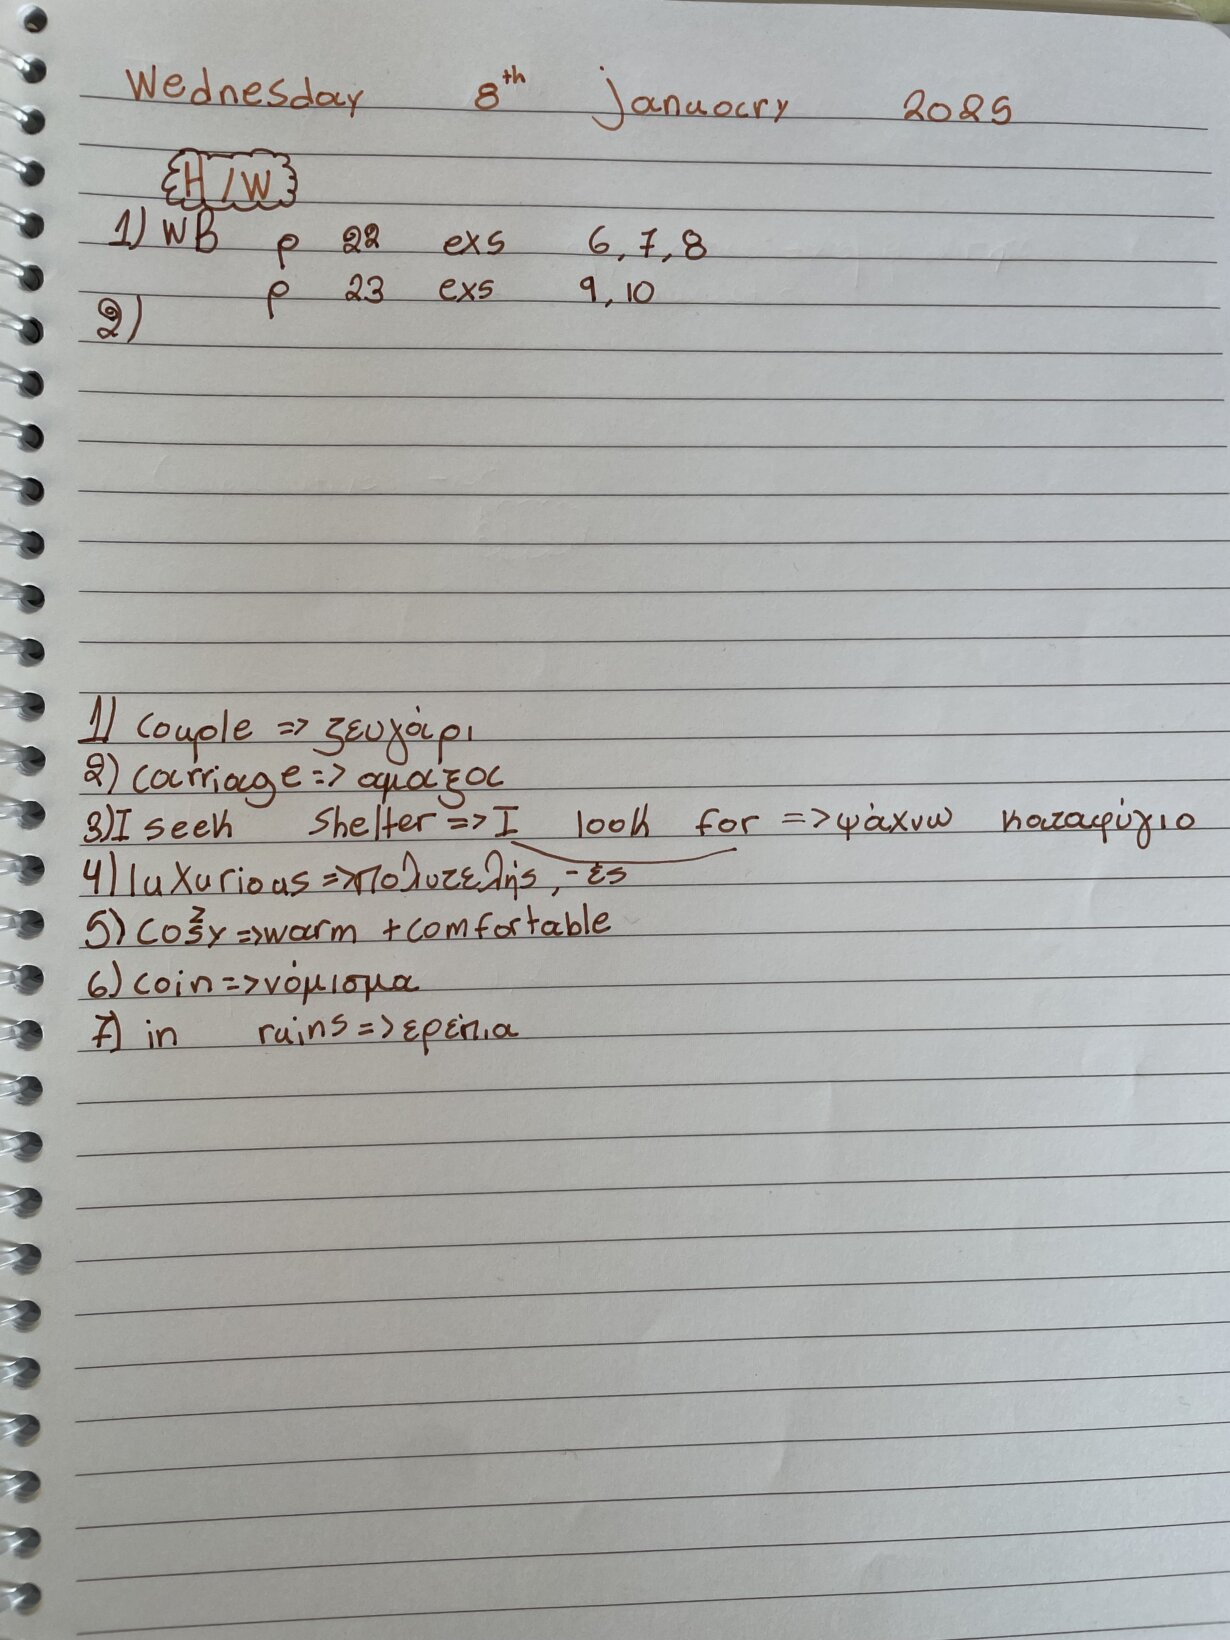 Wednesday 8th January 2025
H/W
1) WB p 22 exs 6, 7, 8
p 23 exs 9, 10
2)
1) couple => ζευγάρι
2) carriage => αμαξας
3) I seek shelter => I look for => ψάχνω καταφύγιο
4) luxurious => πολυτελής, -ές
5) cosy z => warm + comfortable
6) coin => νόμισμα
7) in ruins => ερείπια